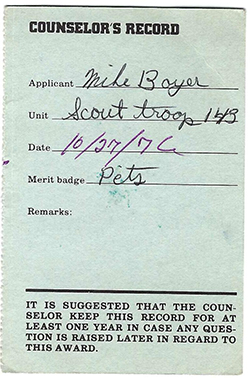 COUNSELOR'S RECORD
Applicant Mike Boyer
Unit Scout troop 143
Date 10/27/76
Merit badge Pets
Remarks:
IT IS SUGGESTED THAT THE COUN-
SELOR KEEP THIS RECORD FOR AT
LEAST ONE YEAR IN CASE ANY QUES-
TION IS RAISED LATER IN REGARD TO
THIS AWARD.